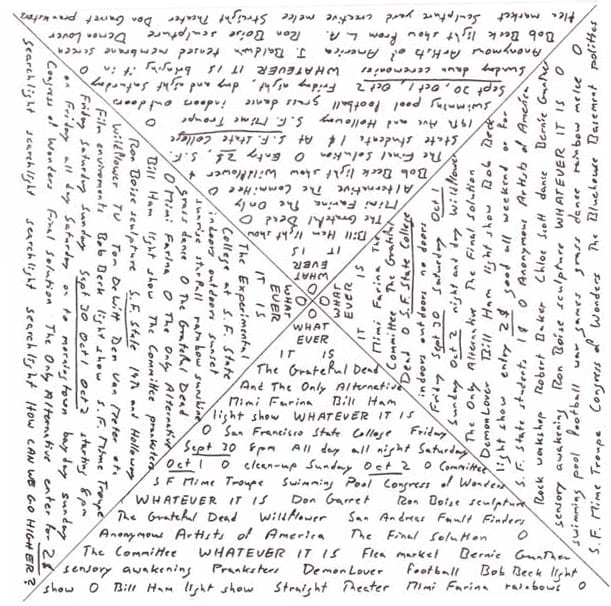 WHAT
EVER
IT IS
The Grateful Dead
And The Only Alternative
Mimi Farina Bill Ham
light show WHATEVER IT IS
O San Francisco State College Friday
Sept 30 8pm All day all night Saturday
Oct 1 O clean-up Sunday Oct 2 O Committee
S F Mime Troupe Swimming Pool Congress of Wonders
WHATEVER IT IS Don Garret Ron Boise sculpture
The Grateful Dead Wildflower San Andreas Fault Finders
Anonymous Artists of America The Final Solution O
The Committee WHATEVER IT IS Flea market Bernie Gunther
sensory awakening Pranksters DemonLover football Bob Beck light
show O Bill Ham light show Straight Theater Mimi Farina rainbows O
WHAT
EVER
IT IS
The Experimental
College at S.F. State
indoors outdoors sunset
sunrise starfall rainbow sunshine
grass dance O The Grateful Dead
O Mimi Farina O The Only Alternative
Bill Ham light show The Committee pranksters
Ron Boise sculpture S.F. State 19th and Holloway
Wildflower TV Tom DeWitt Don Van Meter etc
Film enviroments Bob Beck light show S.F. Mime Troupe
Friday Saturday Sunday Sept 30 Oct 1 Oct 2 starting 8 pm
on Friday all day Saturday on to morning town day Sunday
Congress of Wonders Final Solution The Only Alternative enter for 2$
searchlight searchlight searchlight searchlight HOW CAN WE GO HIGHER?
WHAT
EVER
IT IS
Bill Ham light show
The Grateful Dead O
Mimi Farina The Only
Alternative The Committee O
Bob Beck light show Wildflower +
The Final Solution O Entry 2$, S.F.
State students 1$ At S.F. State College
19th Ave and Holloway S.F. Mime Troupe O
Swimming pool football grass dance indoors outdoors
Sept 30 Oct 1 Oct 2 Friday night, day and night Saturday
Sunday dance ceremonies WHATEVER IT IS bringing it in O
Anonymous Artists of America J. Baldwin tensed membrane screen
Bob Beck light show from L.A. Ron Boise sculpture Demon Lover
flea market sculpture yard creative melee Straight Theater Don Garret pranksters
WHAT
EVER
IT IS
Mimi Farina The
Committee The Grateful
Dead O S.F. State College
indoors outdoors no doors
Friday Sept 30 Saturday Oct 1
Sunday Oct 2 night and day Wildflower
The Only Alternative The Final Solution
DemonLover Bill Ham light show Bob Beck
light show entry 2$ good all weekend or for
S.F. State students 1$ O Anonymous Artists of America
Rock workshop Robert Baker Chloe Scott dance Bernie Gunther
sensory awakening Ron Boise sculpture WHATEVER IT IS O
swimming pool football war games grass dance rainbow melee O
S.F. Mime Troupe Congress of Wonders The Bluehouse Basement